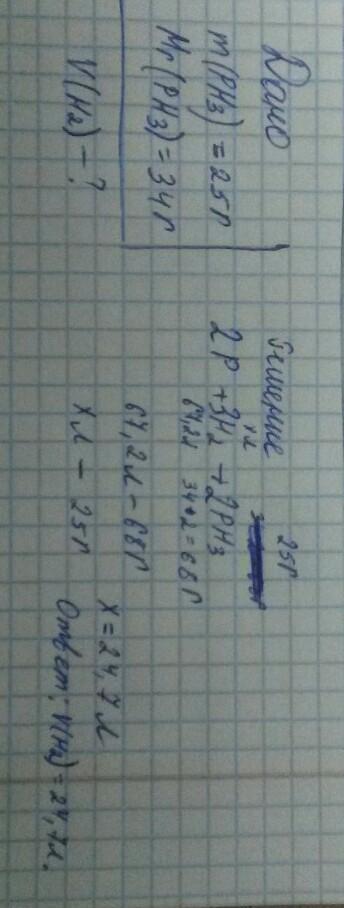 Дано
m(PH3) = 25г
Mr(PH3) = 34г
V(H2) - ?
Решение
хл 25г
2P + 3H2 → 2PH3
67,2л 34*2=68г
67,2л - 68г
хл - 25г
х = 24,7л
Ответ: V(H2) = 24,7л.